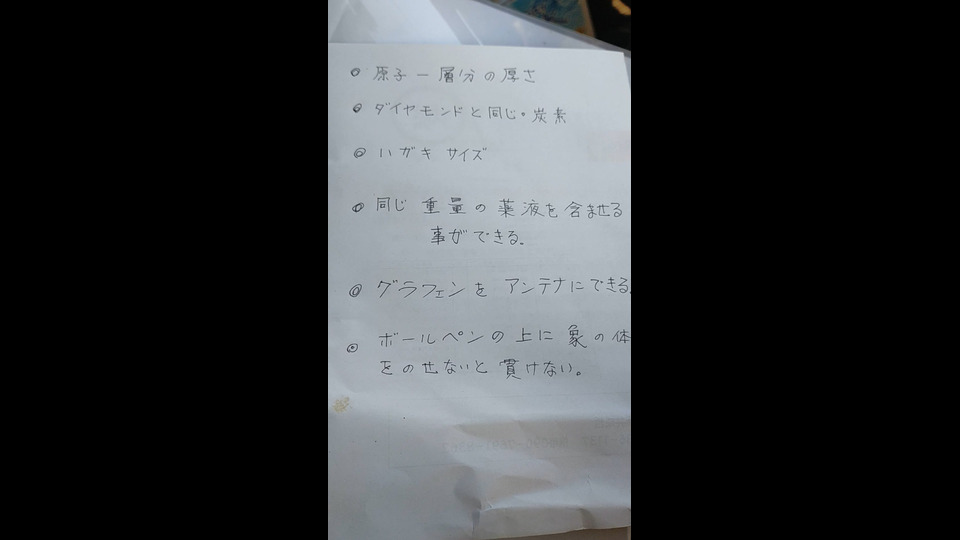 ◎ 原子一層分の厚さ
◎ ダイヤモンドと同じ。炭素
◎ ハガキ サイズ
◎ 同じ 重量の薬液を含ませる
事ができる。
◎ グラフェンを アンテナにできる。
◎ ボールペンの上に 象の体
をのせないと 貫けない。